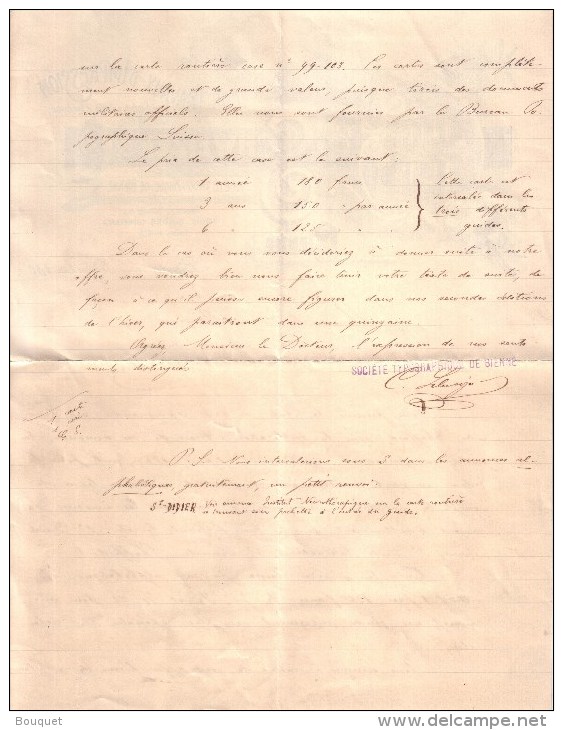 sur la carte routière case nº 99-103. Ces cartes sont complète-
ment nouvelles et de grande valeur, puisque tirées des documents
militaires officiels. Elles nous sont fournies par le Bureau To-
pographique Suisse.
Le prix de cette case est le suivant:
1 année 180 francs
3 ans 150 " par année
6 " 125 " "
Cette carte est
intercalée dans les
trois différents
guides.
Dans le cas où vous vous décideriez à donner suite à notre
offre, vous voudrez bien nous faire tenir votre texte de suite, de
façon à ce qu'il puisse encore figurer dans nos secondes éditions
de l'hiver, qui paraîtront dans une quinzaine.
Agréez, Monsieur le Docteur, l'expression de nos senti-
ments distingués.
SOCIÉTÉ TYPOGRAPHIQUE DE BIENNE
P.S. Nous intercalerions sous S dans les annonces al-
phabétiques gratuitement, un petit renvoi:
St-DIDIER Voir annonce Institut sur la carte routière
pochette à l'entrée du Guide.
Bouquet
www.delcampe.net